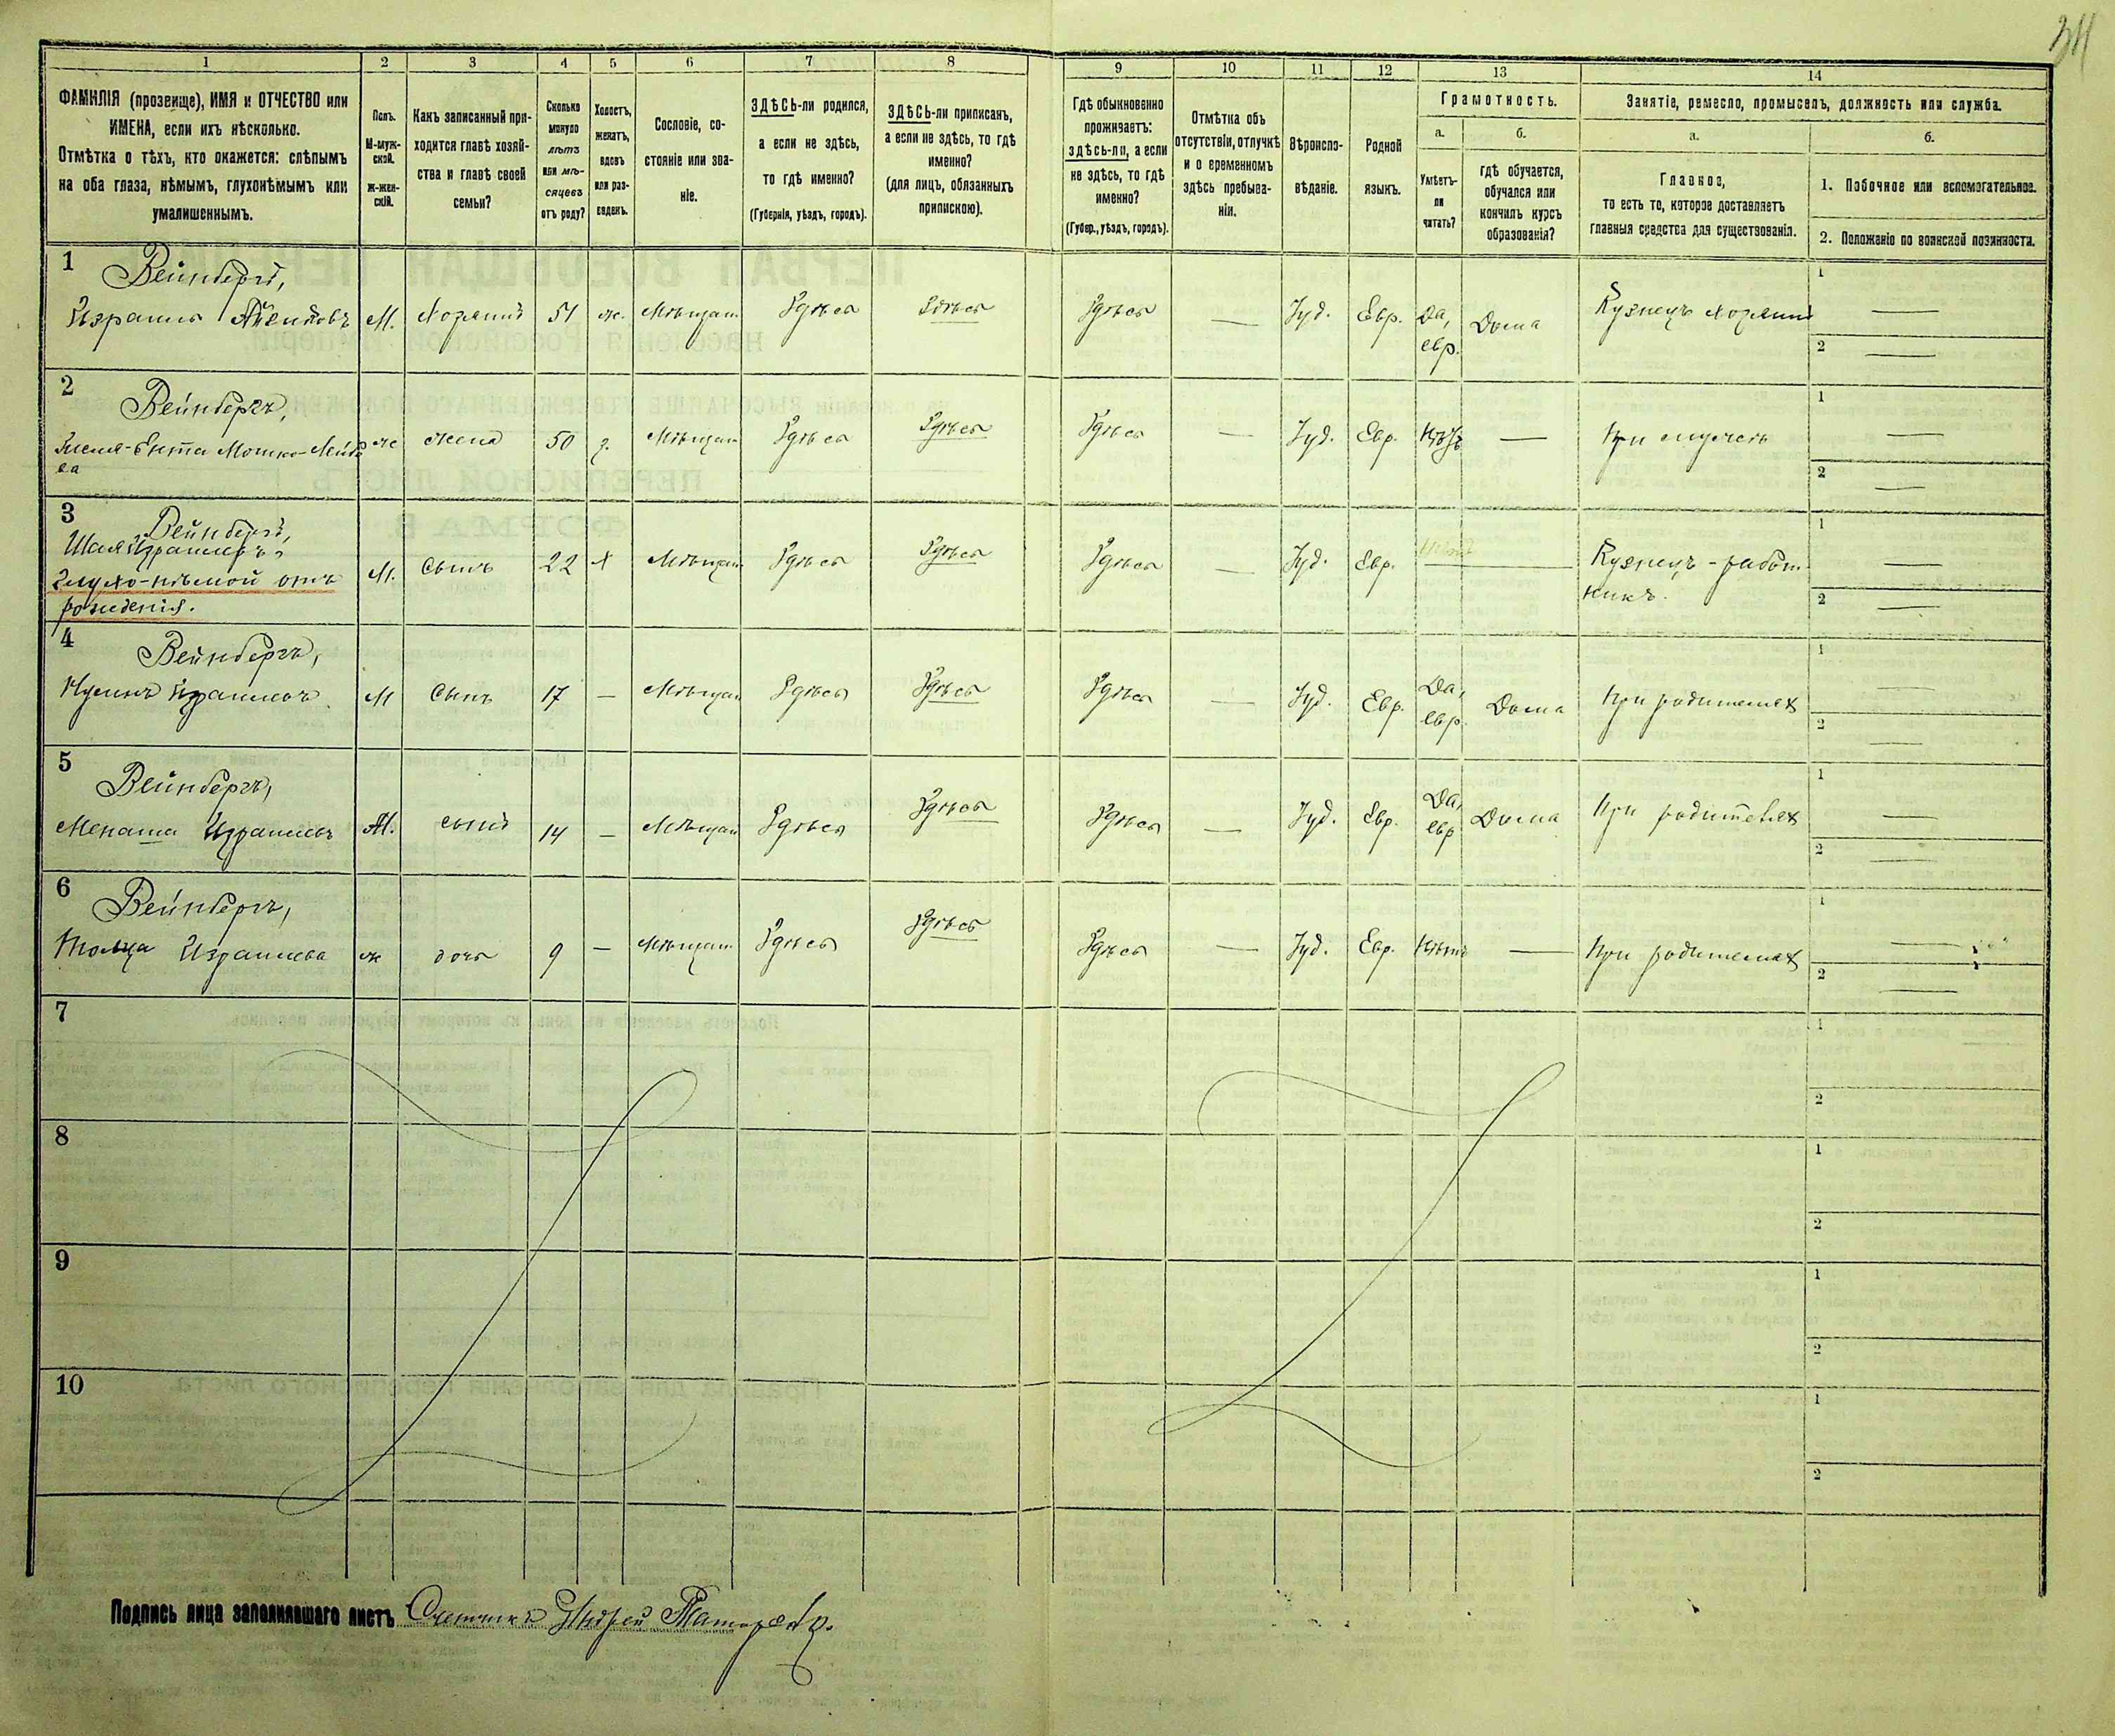 34
1 2 3 4 5 6 7 8 9 10 11 12 13 14
ФАМИЛІЯ (прозвище), ИМЯ и ОТЧЕСТВО или
ИМЕНА, если ихъ нѣсколько.
Отмѣтка о тѣхъ, кто окажется: слѣпымъ
на оба глаза, нѣмымъ, глухонѣмымъ или
умалишеннымъ.
Полъ.
М-муж-
ской.
Ж-жен-
скій.
Какъ записанный при-
ходится главѣ хозяй-
ства и главѣ своей
семьи?
Сколько
минуло
лѣтъ
или мѣ-
сяцевъ
отъ роду?
Холостъ,
женатъ,
вдовъ
или раз-
веденъ.
Сословіе, со-
стояніе или зва-
ніе.
ЗДѢСЬ-ли родился,
а если не здѣсь,
то гдѣ именно?
(Губернія, уѣздъ, городъ).
ЗДѢСЬ-ли приписанъ,
а если не здѣсь, то гдѣ
именно?
(для лицъ, обязанныхъ
припискою).
Гдѣ обыкновенно
проживаетъ:
здѣсь-ли, а если
не здѣсь, то гдѣ
именно?
(Губер., уѣздъ, городъ).
Отмѣтка объ
отсутствіи, отлучкѣ
и о временномъ
здѣсь пребыва-
ніи.
Вѣроиспо-
вѣданіе.
Родной
языкъ.
Грамотность.
а.
Умѣетъ-
ли
читать?
б.
гдѣ обучается,
обучался или
кончилъ курсъ
образованія?
Занятіе, ремесло, промыселъ, должность или служба.
а.
Главное,
то есть то, которое доставляетъ
главныя средства для существованія.
б.
1. Побочное или вспомогательное.
2. Положеніе по воинской повинности.
1
Вейнбергъ,
Израиль
М. Хозяинъ 51 ж. Мѣщан. Здѣсь Здѣсь Здѣсь — Іуд. Евр. Да, евр. Дома Кузнецъ хозяинъ
1 —
2 —
2
Вейнбергъ,
Ента Мошко-Лейб
ва
ж жена 50 з. Мѣщан Здѣсь Здѣсь Здѣсь — Іуд. Евр. Нѣтъ — При
1 —
2 —
3
Вейнбергъ,
Шая Израилевъ,
Глухо-нѣмой отъ
рожденія.
М. Сынъ 22 х Мѣщан Здѣсь Здѣсь Здѣсь — Іуд. Евр. — Кузнецъ - работ
никъ.
1 —
2 —
4
Вейнбергъ,
Нусинъ Израилевъ
М Сынъ 17 — Мѣщан Здѣсь Здѣсь Здѣсь — Іуд. Евр. Да, евр. Дома При родителях
1 —
2 —
5
Вейнбергъ,
Менаша Израилевъ
М. сынъ 14 — Мѣщан Здѣсь Здѣсь Здѣсь — Іуд. Евр. Да, евр Дома При родителях
1 —
2 —
6
Вейнбергъ,
Израилева
ж дочь 9 — Мѣщан Здѣсь Здѣсь Здѣсь — Іуд. Евр. Нѣтъ — При родителях
1 —
2 —
7
1
2
8
1
2
9
1
2
10
1
2
Подпись лица заполнившаго листъ Счетчикъ Андрей